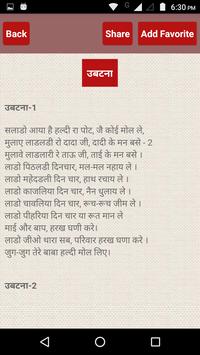 6:30 PM
Back
Share
Add Favorite
उबटना
उबटना-1
सलाडो आया है हल्दी रा पोट, जै कोई मोल ले,
मुलाए लाडलडी रो दादा जी, दादी के मन बसे - 2
मुलावे लाडलारी रे ताऊ जी, ताई के मन बसे ।
लाडो पिठलडी दिनचार, मल-मल नहाय ले ।
लाडो महेदडली दिन चार, हाथ रचाय ले ।
लाडो काजलिया दिन चार, नैन धुलाय ले ।
लाडो चावलिया दिन चार, रूच-रूच जीम ले ।
लाडो पीहरिया दिन चार या रूत मान ले
माई और बाप, हरख घणी करे।
लाडो जीओ थारा सब, परिवार हरख घणा करे ।
जुग-जुग तेरे बाबा हल्दी मोल लिए।
उबटना-2